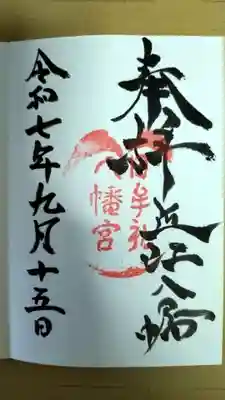 奉拝
近江八幡
日牟礼
八幡宮
令和七年九月十五日